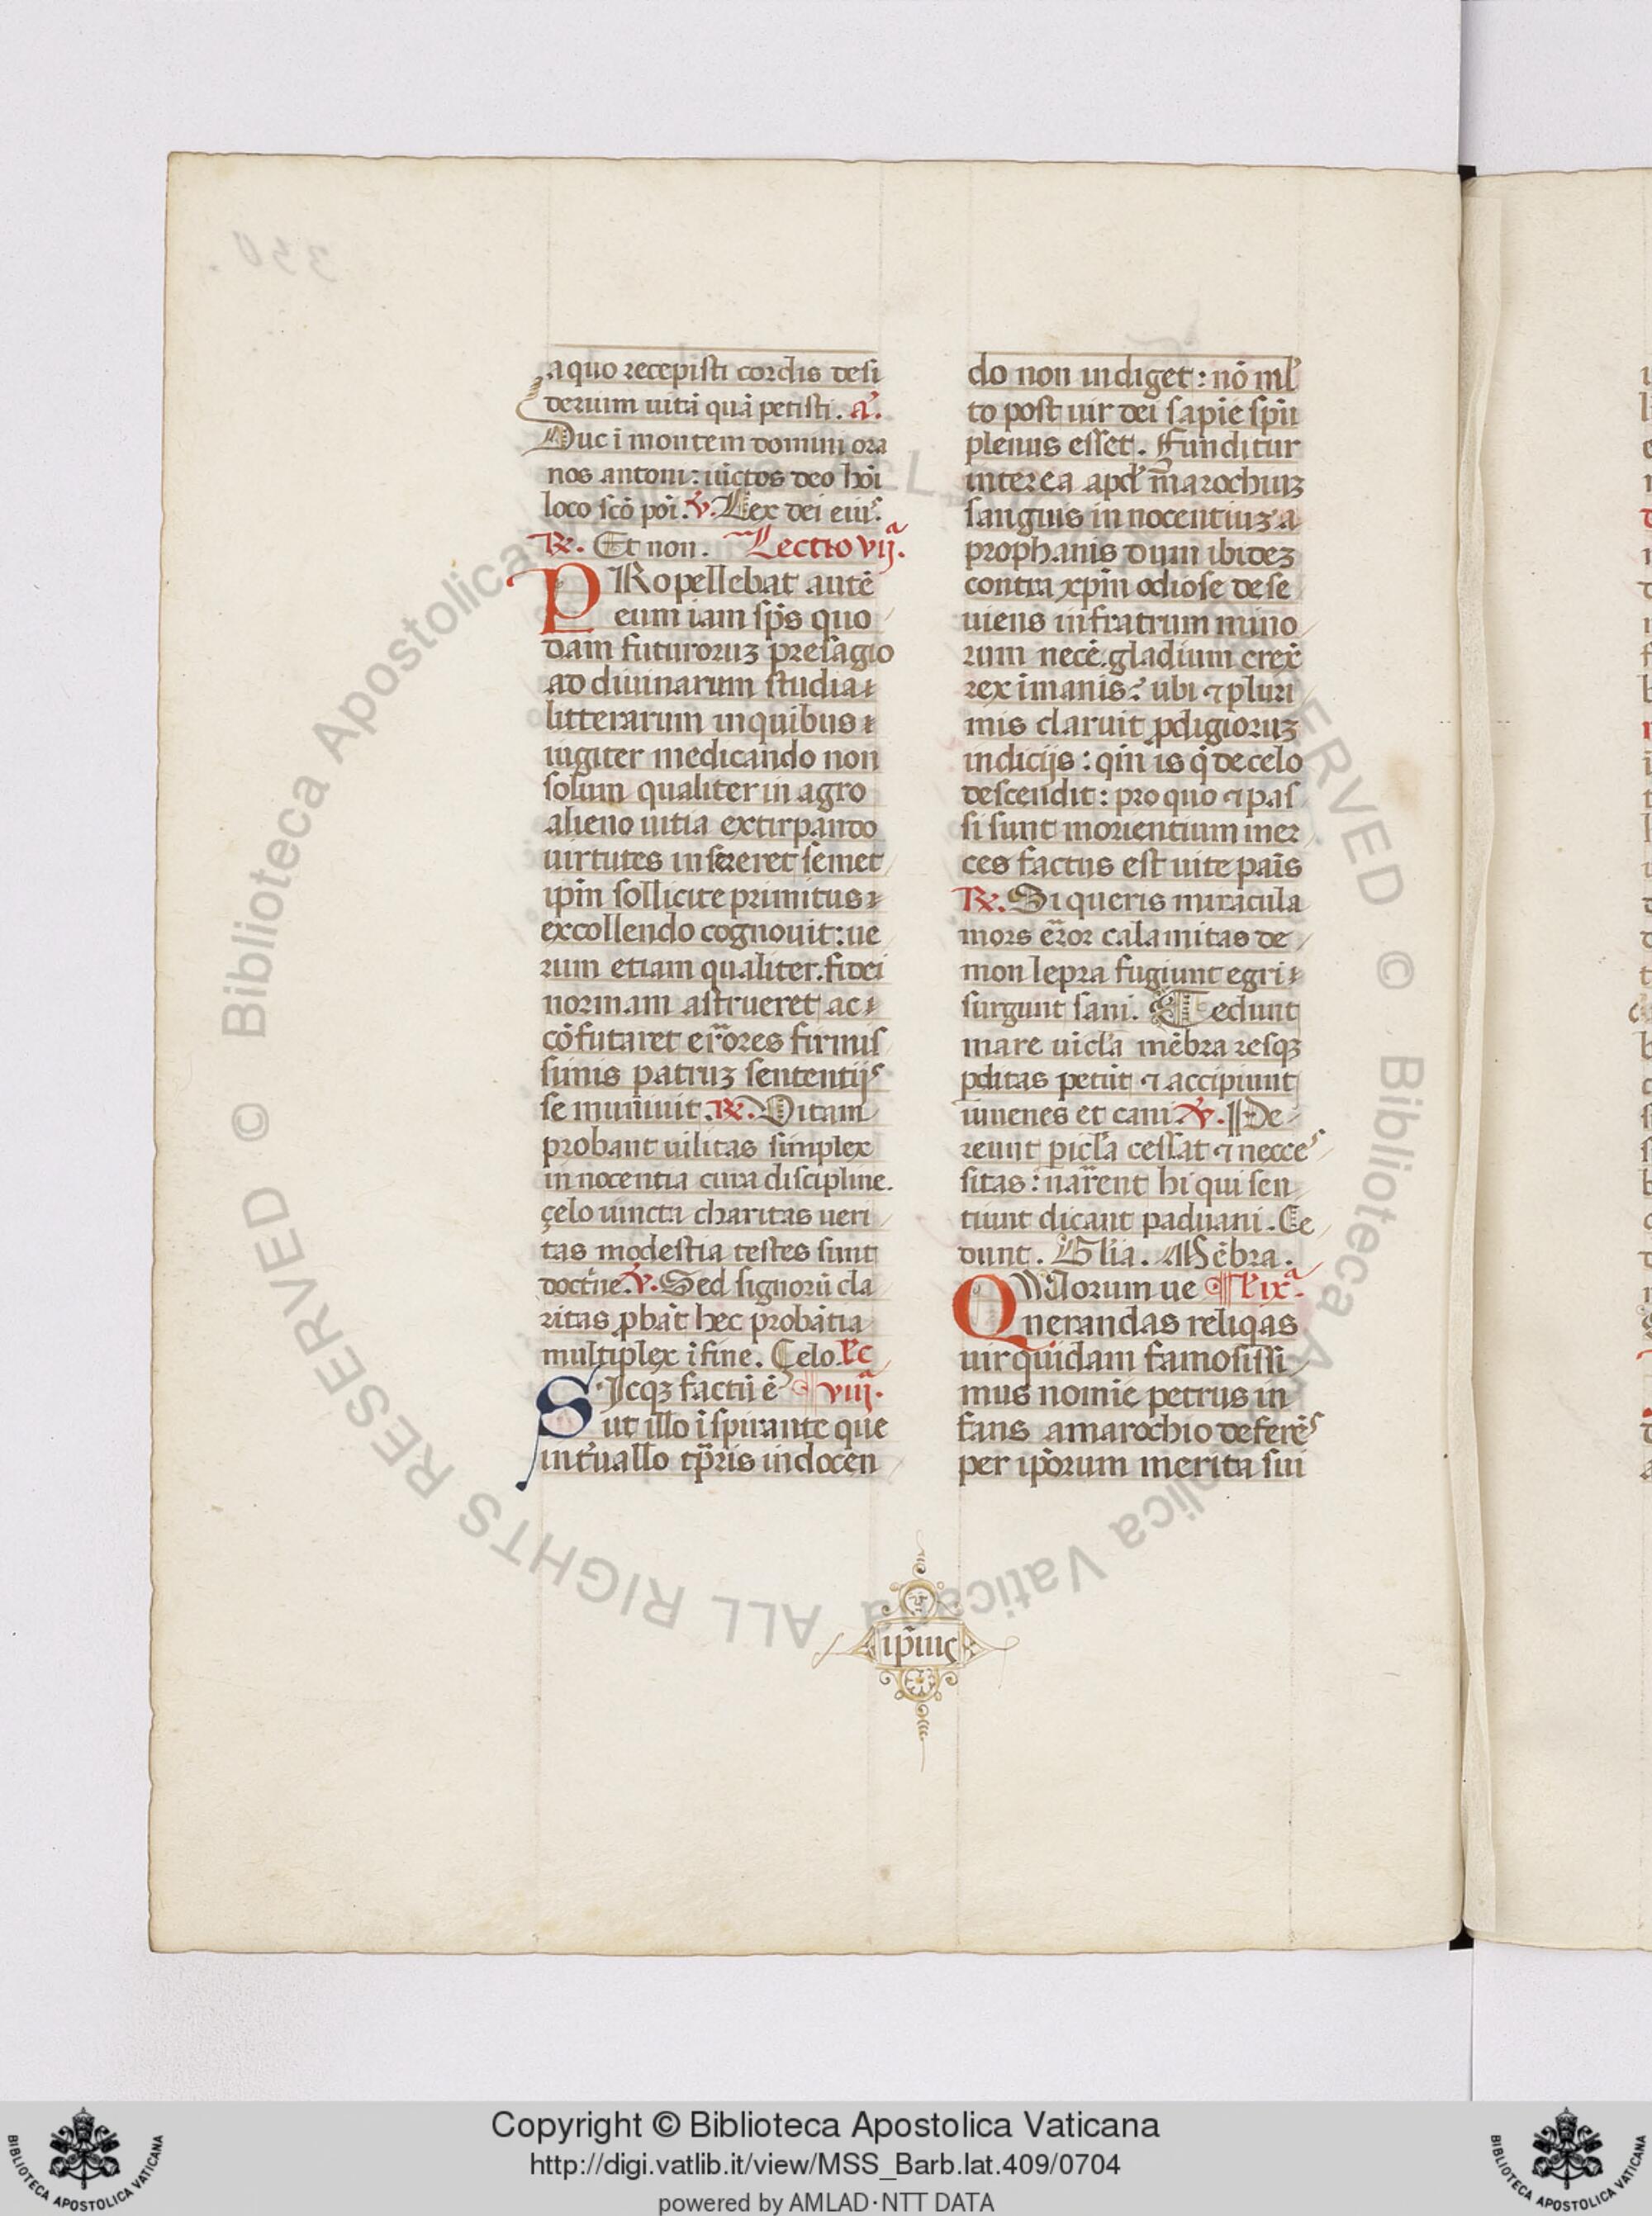 a quo recepisti cordis desi
derium uitā quā petisti. a͛.
Duc ī montem domini ora
nos antoni: iūctos deo hōi
loco scō pōi. v. Lex dei eiuˢ.
R. Et non. Lectio vijᵃ.
PRopellebat autē
eum iam sp̄s quo
dam futuroruꝫ presagio
ad diuinarum studia
litterarum in quibus
iugiter medicando non
solum qualiter in agro
alieno uitia extirpando
uirtutes insereret semet
ipm̄ sollicite primitus
excollendo cognouit: ue
rum etiam qualiter fidei
normam astrueret ac
cōfutaret errores firmis
simis patruꝫ sententijˢ
se muniuit. R. Vitam
probant uilitas simplex
innocentia cura discipline.
çelo uincta charitas ueri
tas modestia testes sunt
doctⁱne. v. Sed signorū cla
ritas ꝓbāt hec probātia
multiplex ī fine. Çelo. Lc̄
SIcqꝫ factū ē viijᵃ.
ut illo īspirante que
int̄uallo tp̄ris in docen
do non indiget: nō ml̄
to post uir dei sapiē spū
plenus esset. Funditur
interea apd̄ marochiuꝫ
sanguis innocentiuꝫ a
prophanis dum ibideꝫ
contra xp̄m odiose dese
uiens in fratrum mino
rum necē. gladium erex̄
rex īmanis: ubi ⁊ pluri
mis claruit ꝓdigioruꝫ
indicijs: qm̄ is qⁱ de celo
descendit: pro quo ⁊ pas
si sunt morientium mer
ces factus est uite pāis
R. Si queris miracula
mors error calamitas de
mon lepra fugiunt egri
surgunt sani. Cedunt
mare uīcl̄a mēbra resqꝫ
ꝑditas petūt ⁊ accipiunt
iuuenes et cani. v. Pe
reunt ꝑicl̄a cessat ⁊ necceˢ
sitas: narrent hi qui sen
tiunt dicant paduani. Ce
dunt. Glīa. Mēbra.
QVorum ue L̄ ixᵃ.
nerandas reliqas
uir quidam famosissi
mus nomīe petrus in
fans a marochio deferēˢ
per ipōrum merita sui
ip̄iuˢ
Copyright © Biblioteca Apostolica Vaticana
http://digi.vatlib.it/view/MSS_Barb.lat.409/0704
powered by AMLAD·NTT DATA